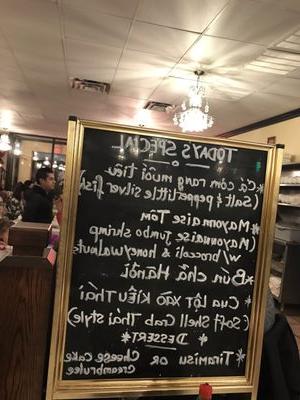 TODAY'S SPECIAL
*Cá cơm rang muối tiêu
(Salt & pepper little silver fish)
*Mayonnaise Tôm
(Mayonaise Jumbo shrimp
w/ broccoli & honey walnuts
*Bún chả Hànôi
*Cua LỘT XÀO KIỂU THÁI
(Soft Shell Crab Thai style)
* DESSERT *
*Tiramisu OR Cheese Cake
Creambrulee